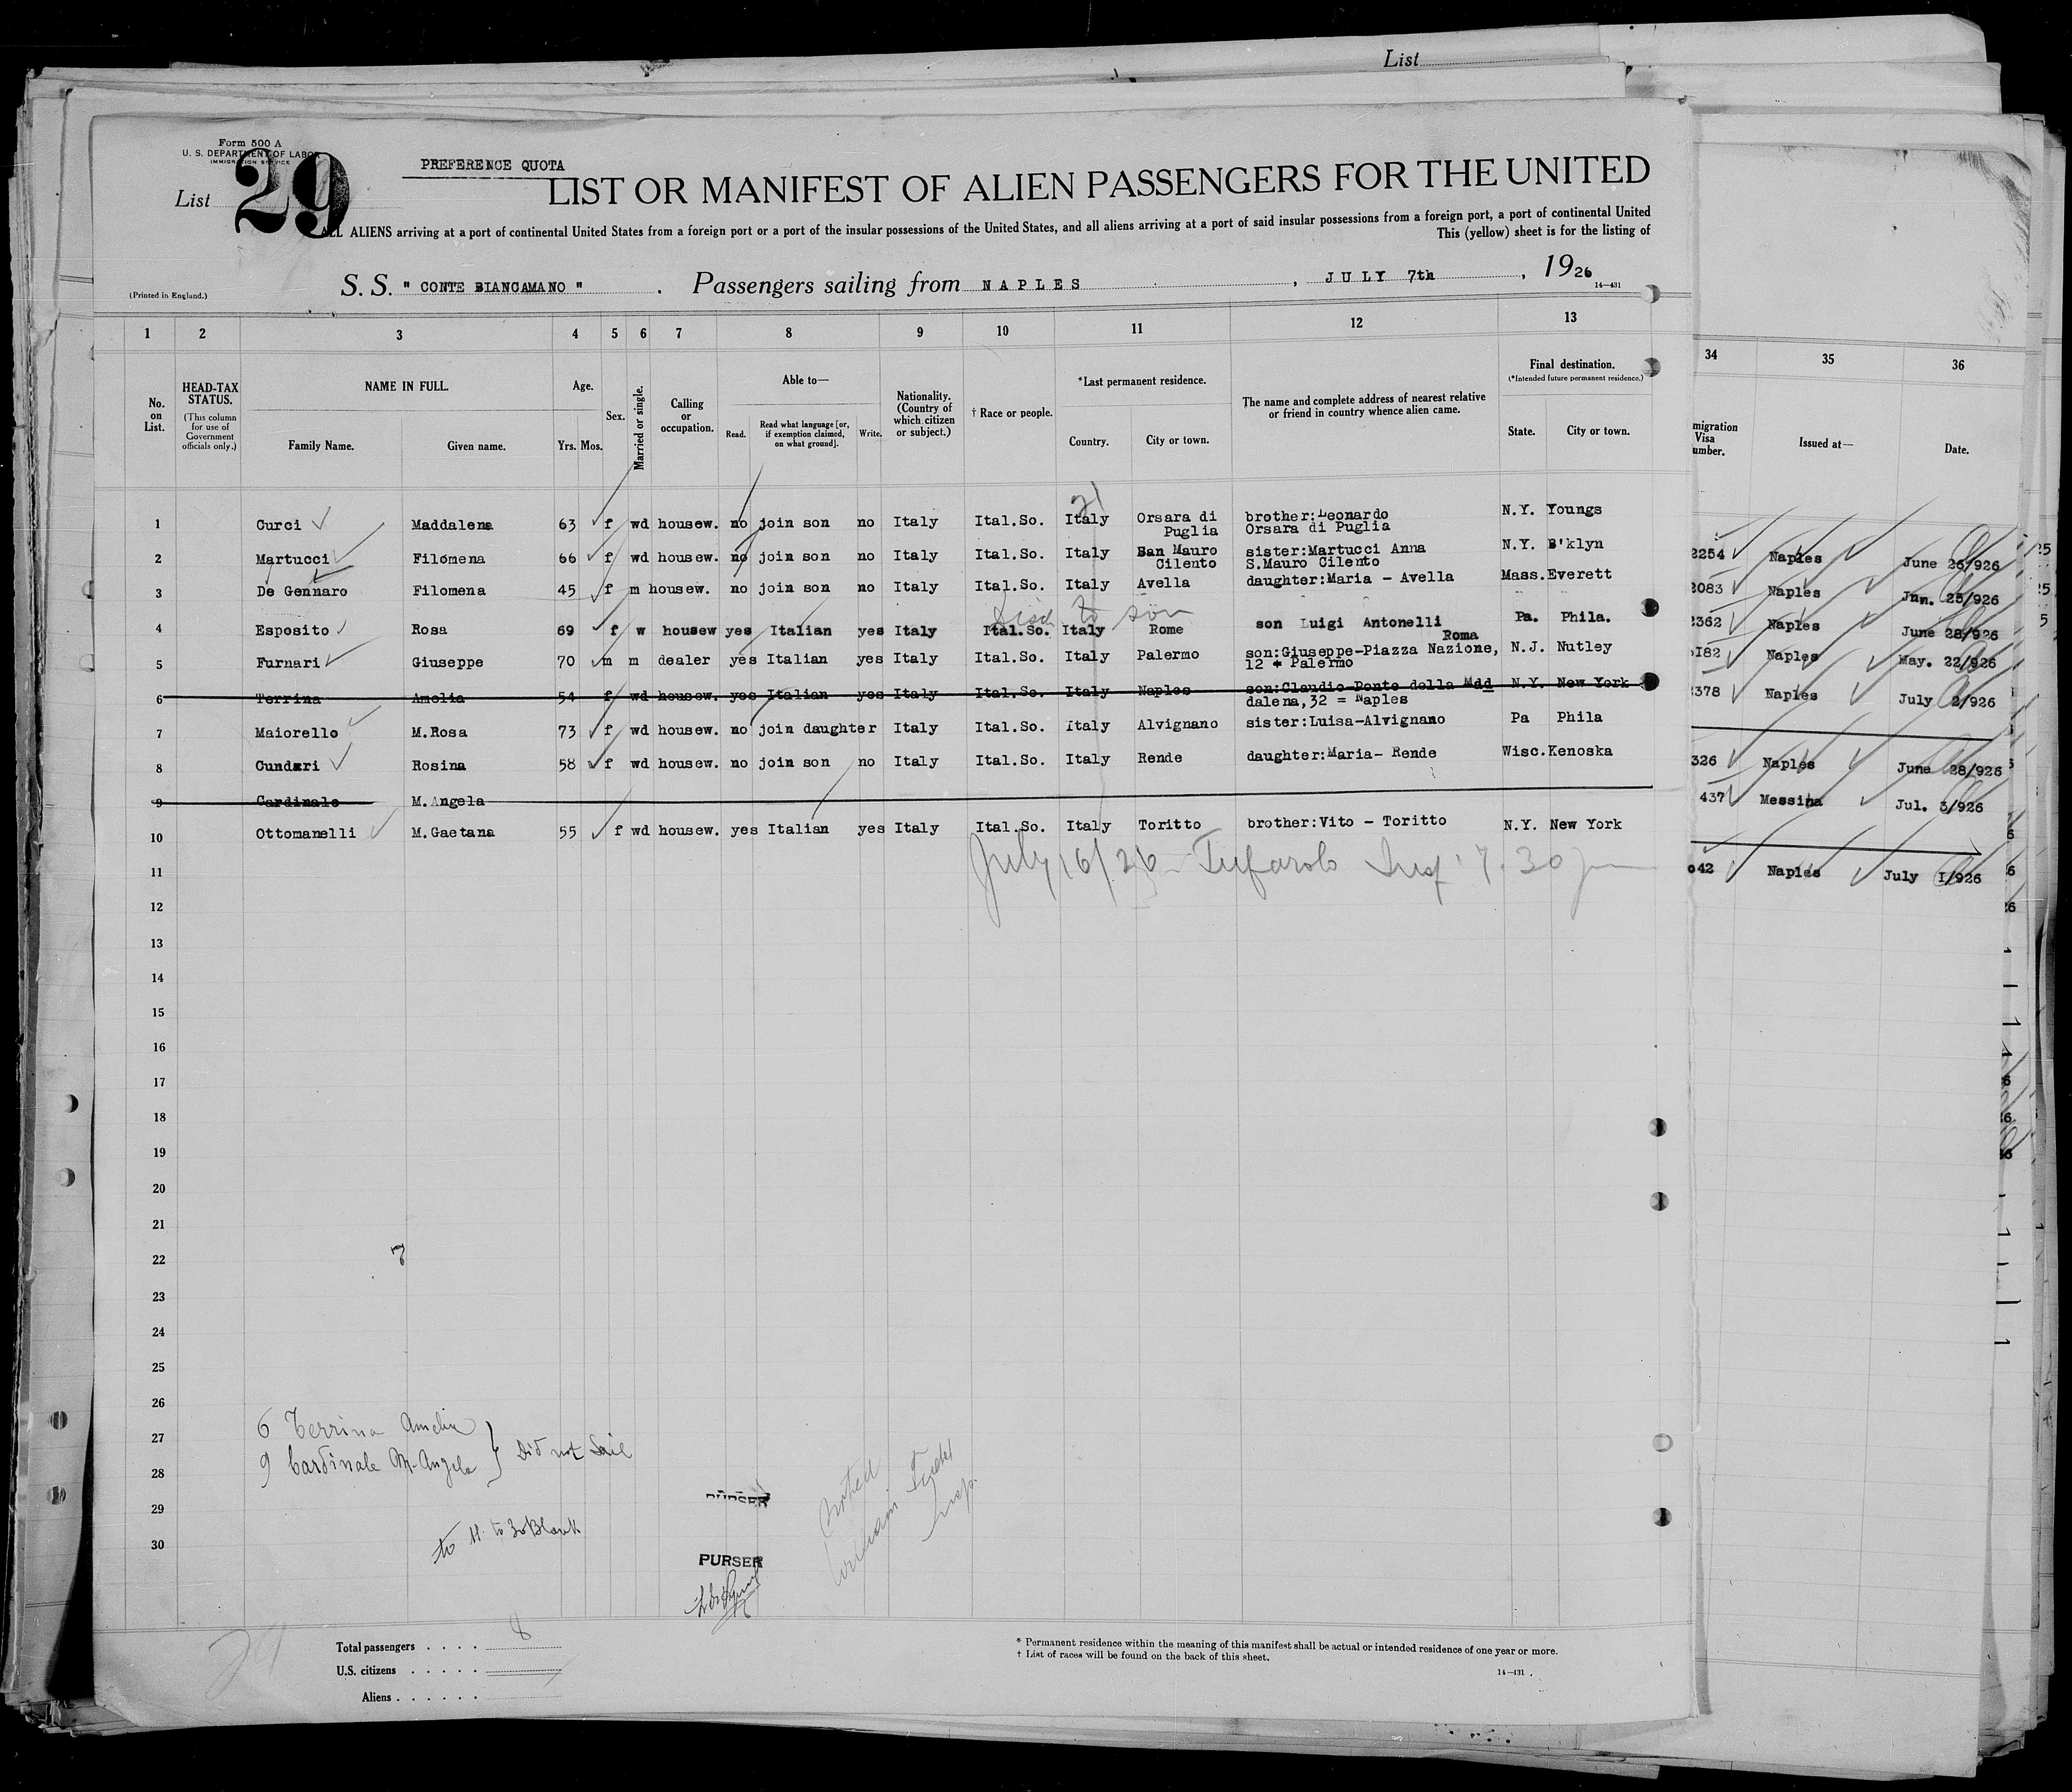 List
Form 500 A
U. S. DEPARTMENT OF LABOR
IMMIGRATION SERVICE
List 29
PREFERENCE QUOTA
LIST OR MANIFEST OF ALIEN PASSENGERS FOR THE UNITED
ALL ALIENS arriving at a port of continental United States from a foreign port or a port of the insular possessions of the United States, and all aliens arriving at a port of said insular possessions from a foreign port, a port of continental United
This (yellow) sheet is for the listing of
(Printed in England.)
S. S. " CONTE BIANCAMANO " . Passengers sailing from NAPLES , JULY 7th , 1926
14—431
1 2 3 4 5 6 7 8 9 10 11 12 13 34 35 36
No. on List.
HEAD-TAX STATUS.
(This column for use of Government officials only.)
NAME IN FULL.
Family Name. Given name.
Age.
Yrs. Mos.
Sex.
Married or single.
Calling or occupation.
Able to—
Read. Read what language [or, if exemption claimed, on what ground]. Write.
Nationality. (Country of which citizen or subject.)
† Race or people.
*Last permanent residence.
Country. City or town.
The name and complete address of nearest relative or friend in country whence alien came.
Final destination.
(*Intended future permanent residence.)
State. City or town.
migration Visa umber.
Issued at—
Date.
1 Curci Maddalena 63 f wd housew. no join son no Italy Ital.So. Italy Orsara di Puglia brother:Leonardo Orsara di Puglia N.Y. Youngs
2 Martucci Filomena 66 f wd housew. no join son no Italy Ital.So. Italy San Mauro Cilento sister:Martucci Anna S.Mauro Cilento N.Y. B'klyn
2254 Naples June 26/926
3 De Gennaro Filomena 45 f m housew. no join son no Italy Ital.So. Italy Avella daughter:Maria - Avella Mass. Everett
2083 Naples Jun. 25/926
to son
4 Esposito Rosa 69 f w housew yes Italian yes Italy Ital.So. Italy Rome son Luigi Antonelli Roma Pa. Phila.
2362 Naples June 28/926
5 Furnari Giuseppe 70 m m dealer yes Italian yes Italy Ital.So. Italy Palermo son:Giuseppe-Piazza Nazione, 12 * Palermo N.J. Nutley
I82 Naples May. 22/926
6 Terrina Amelia 54 f wd housew. yes Italian yes Italy Ital.So. Italy Naples son:Claudio-Ponte della Mdd dalena,32 = Naples N.Y. New York
378 Naples July 2/926
7 Maiorello M.Rosa 73 f wd housew. no join daughter Italy Ital.So. Italy Alvignano sister:Luisa-Alvignano Pa Phila
8 Cundari Rosina 58 f wd housew. no join son no Italy Ital.So. Italy Rende daughter:Maria- Rende Wisc. Kenoska
326 Naples June 28/926
9 Cardinale M.Angela
437 Messina Jul. 3/926
10 Ottomanelli M.Gaetana 55 f wd housew. yes Italian yes Italy Ital.So. Italy Toritto brother:Vito - Toritto N.Y. New York
July 16/26 - Tufarolo Insp 7.30 pm
11
042 Naples July I/926
12
13
14
15
16
17
18
19
20
21
22
7
23
24
25
26
6 Terrina Amelia
27
9 Cardinale M. Angela } Did not Sail
28
29
30
to 11 to 30 Blank
PURSER
PURSER
noted
William
Insp.
Total passengers . . . . 8
U.S. citizens . . . . .
Aliens . . . . . .
29
* Permanent residence within the meaning of this manifest shall be actual or intended residence of one year or more.
† List of races will be found on the back of this sheet.
14—431